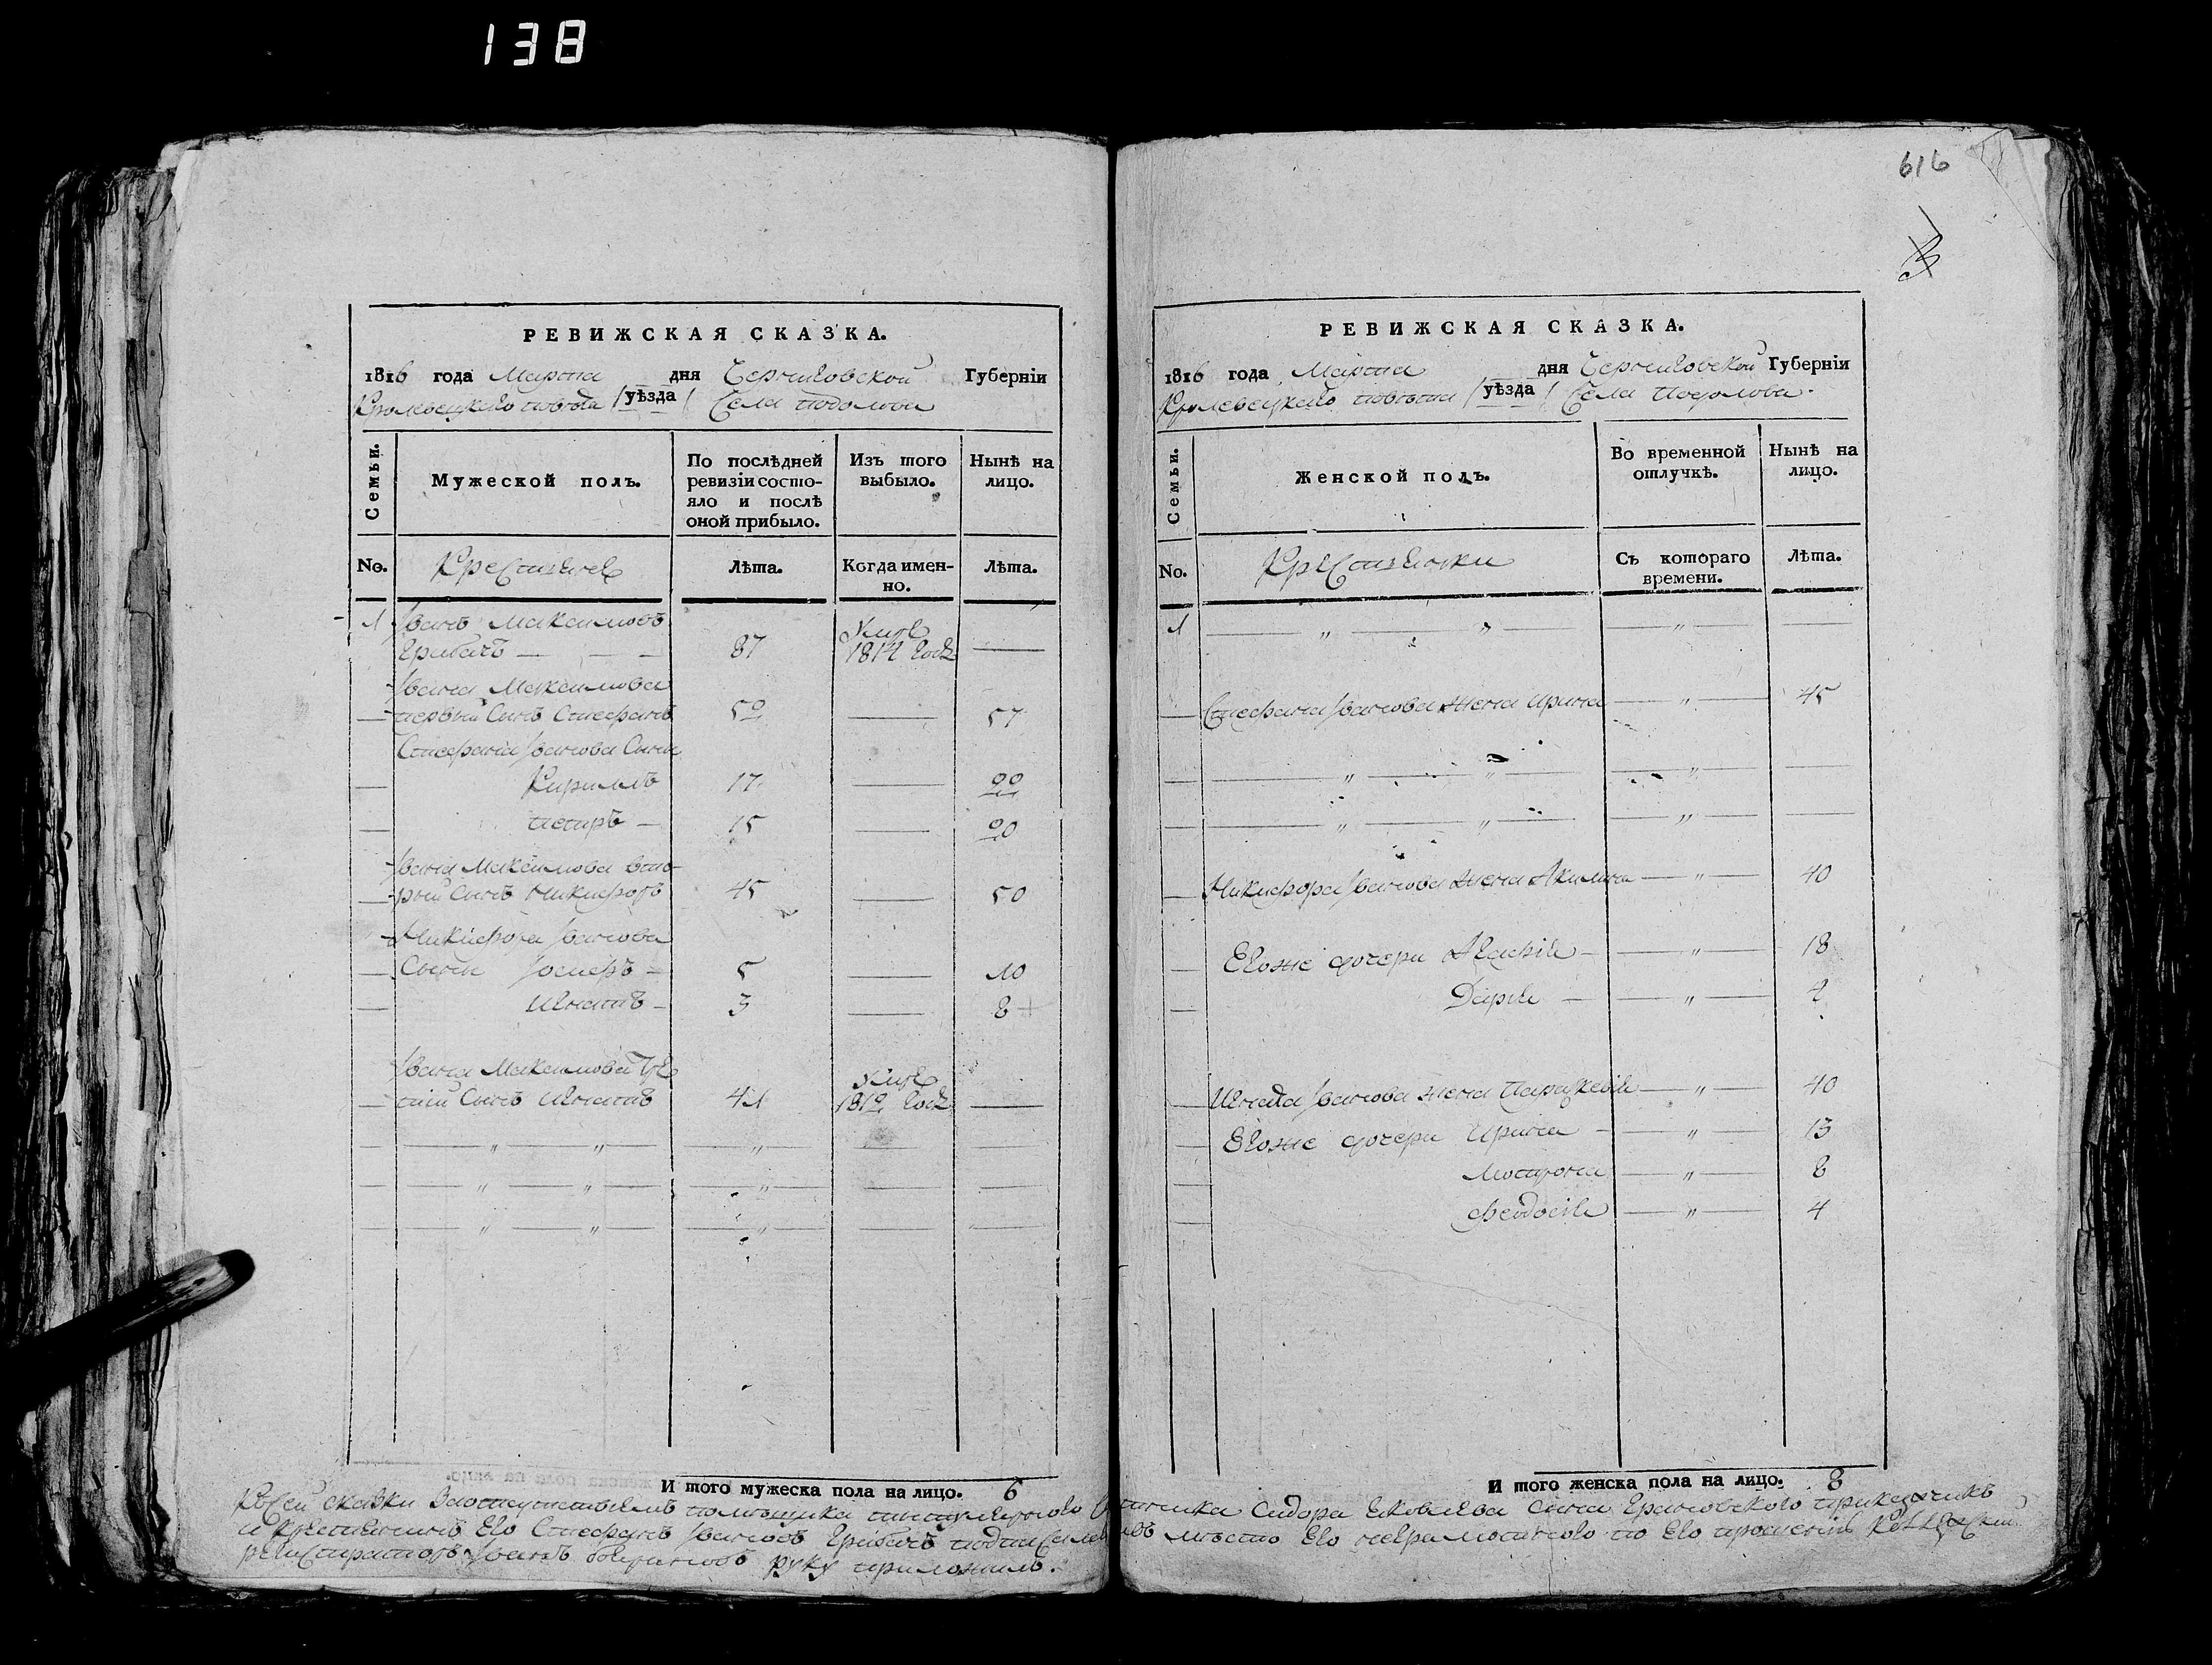 138
616
РЕВИЖСКАЯ СКАЗКА.
1816 года Марта дня Черниговской Губерніи
Кролевецкого повѣта / уѣзда / Села Подолова
Семьи.
Мужеской полъ.
По послѣдней ревизіи состояло и послѣ оной прибыло.
Изъ того выбыло.
Нынѣ на лицо.
No. Крестьяне Лѣта. Когда именно. Лѣта.
1 Іванъ Максимовъ Умре
Грибачъ — — — 87 1814 года —
Івана Максимова
— первый Сынъ Стефанъ 52 — 57
Стефана Іванова Сыни
— Кирилъ 17 — 22
— петръ — 15 — 20
Івана Максимова вто-
— рый Сынъ Никифоръ 45 — 50
Никифора Іванова
— Сыни Іосифъ — 5 — 10
— Игнатъ — 3 — 8
Івана Максимова тре Умре
— тий Сынъ Игнатъ 41 1812 года —
— — „ — „ — — „ — — —
— — „ — „ — — „ — — —
— — „ — „ — — „ — — —
И того мужеска пола на лицо. 6
РЕВИЖСКАЯ СКАЗКА.
1816 года Марта дня Черниговской Губерніи
Кролевецкого повѣта / уѣзда / Села Подолова.
Семьи.
Женской полъ.
Во временной отлучкѣ.
Нынѣ на лицо.
No. Крестьянки Съ котораго времени. Лѣта.
1 — „ — „ — — „ — —
— Стефана Іванова жена Ирина — „ — 45
— — „ — „ — — „ — —
— — „ — „ — — „ — —
— Никифора Іванова жена Акилина — „ — 40
— Егоже дочери Агафія — — „ — 18
Дарія — — „ —
— Игната Іванова жена Параскевія — „ — 40
— Егоже дочери Ирина — — „ — 13
— Мотрона — „ — 8
— Феодосія — „ — 4
И того женска пола на лицо. 8
Ксей скаски Заотсутствіемъ помѣщика Сидора Яковлева Сина Грановского прикащикъ
и крестянинъ Его Стефанъ Івановъ Грибачъ подписался мѣсто Его неграмотного по Его прошенію
регистраторъ Іванъ руку приложилъ.